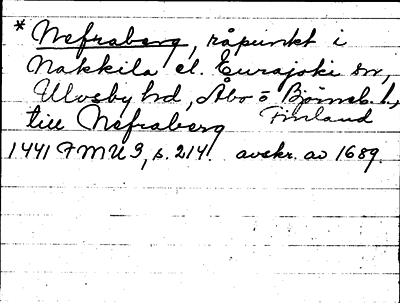 * Nefraberg, råpunkt i
Nakkila el. Eurajoki sn,
Ulvsby hd, Åbo o Björneb. l.,
till Nefraberg Finland
1441 FMU 3, s. 214. avskr. av 1689.